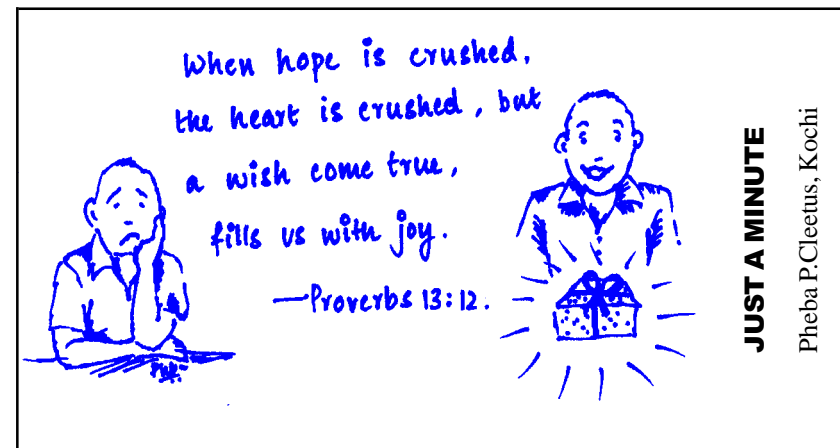 When hope is crushed,
the heart is crushed, but
a wish come true,
fills us with joy.
—Proverbs 13:12.
JUST A MINUTE
Pheba P.Cleetus, Kochi